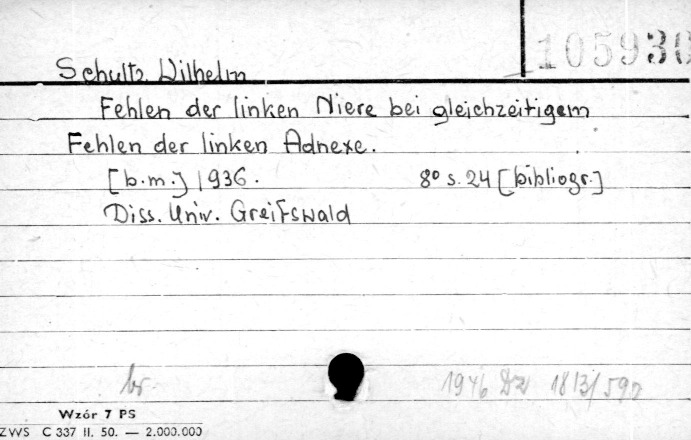 105930
Schultz Wilhelm
Fehlen der linken Niere bei gleichzeitigem
Fehlen der linken Adnexe.
[b.m.] 1936. 8° s. 24 [bibliogr.]
Diss. Univ. Greifswald
br. 1946 Dz 1813/592
Wzór 7 PS
ZWS C 337 II. 50. — 2.000.000